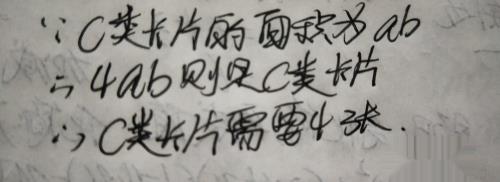 ∵C类卡片的面积为ab
∴4ab则是C类卡片
∴C类卡片需要4张.